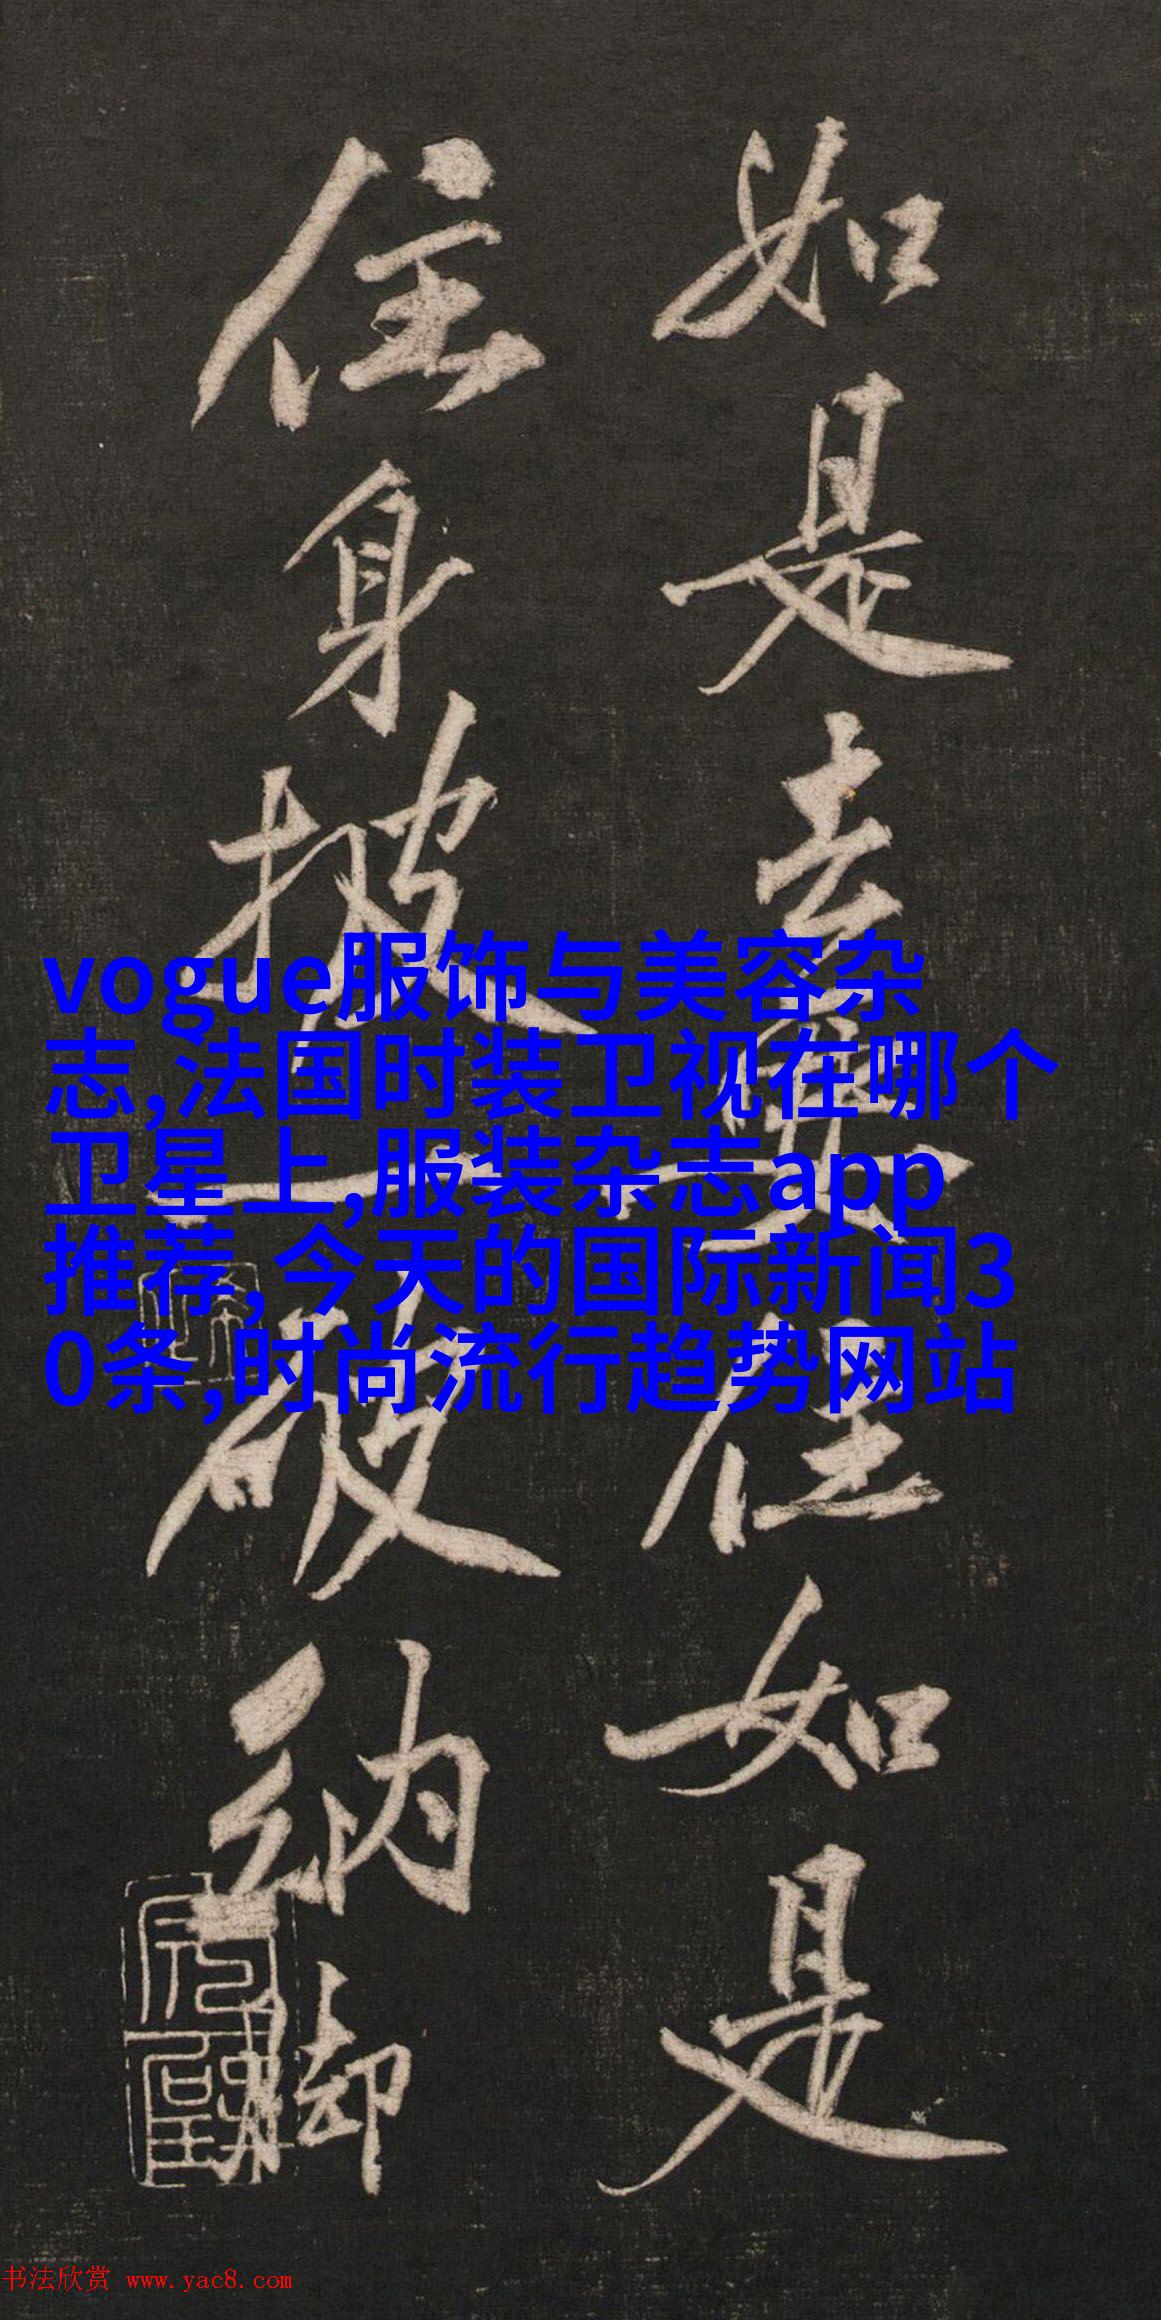 如是去住如是
住身披一破衲脚
vogue服饰与美容杂
志,法国时装卫视在哪个
卫星上,服装杂志app
推荐,今天的国际新闻3
0条,时尚流行趋势网站
书法欣赏 www.yac8.com